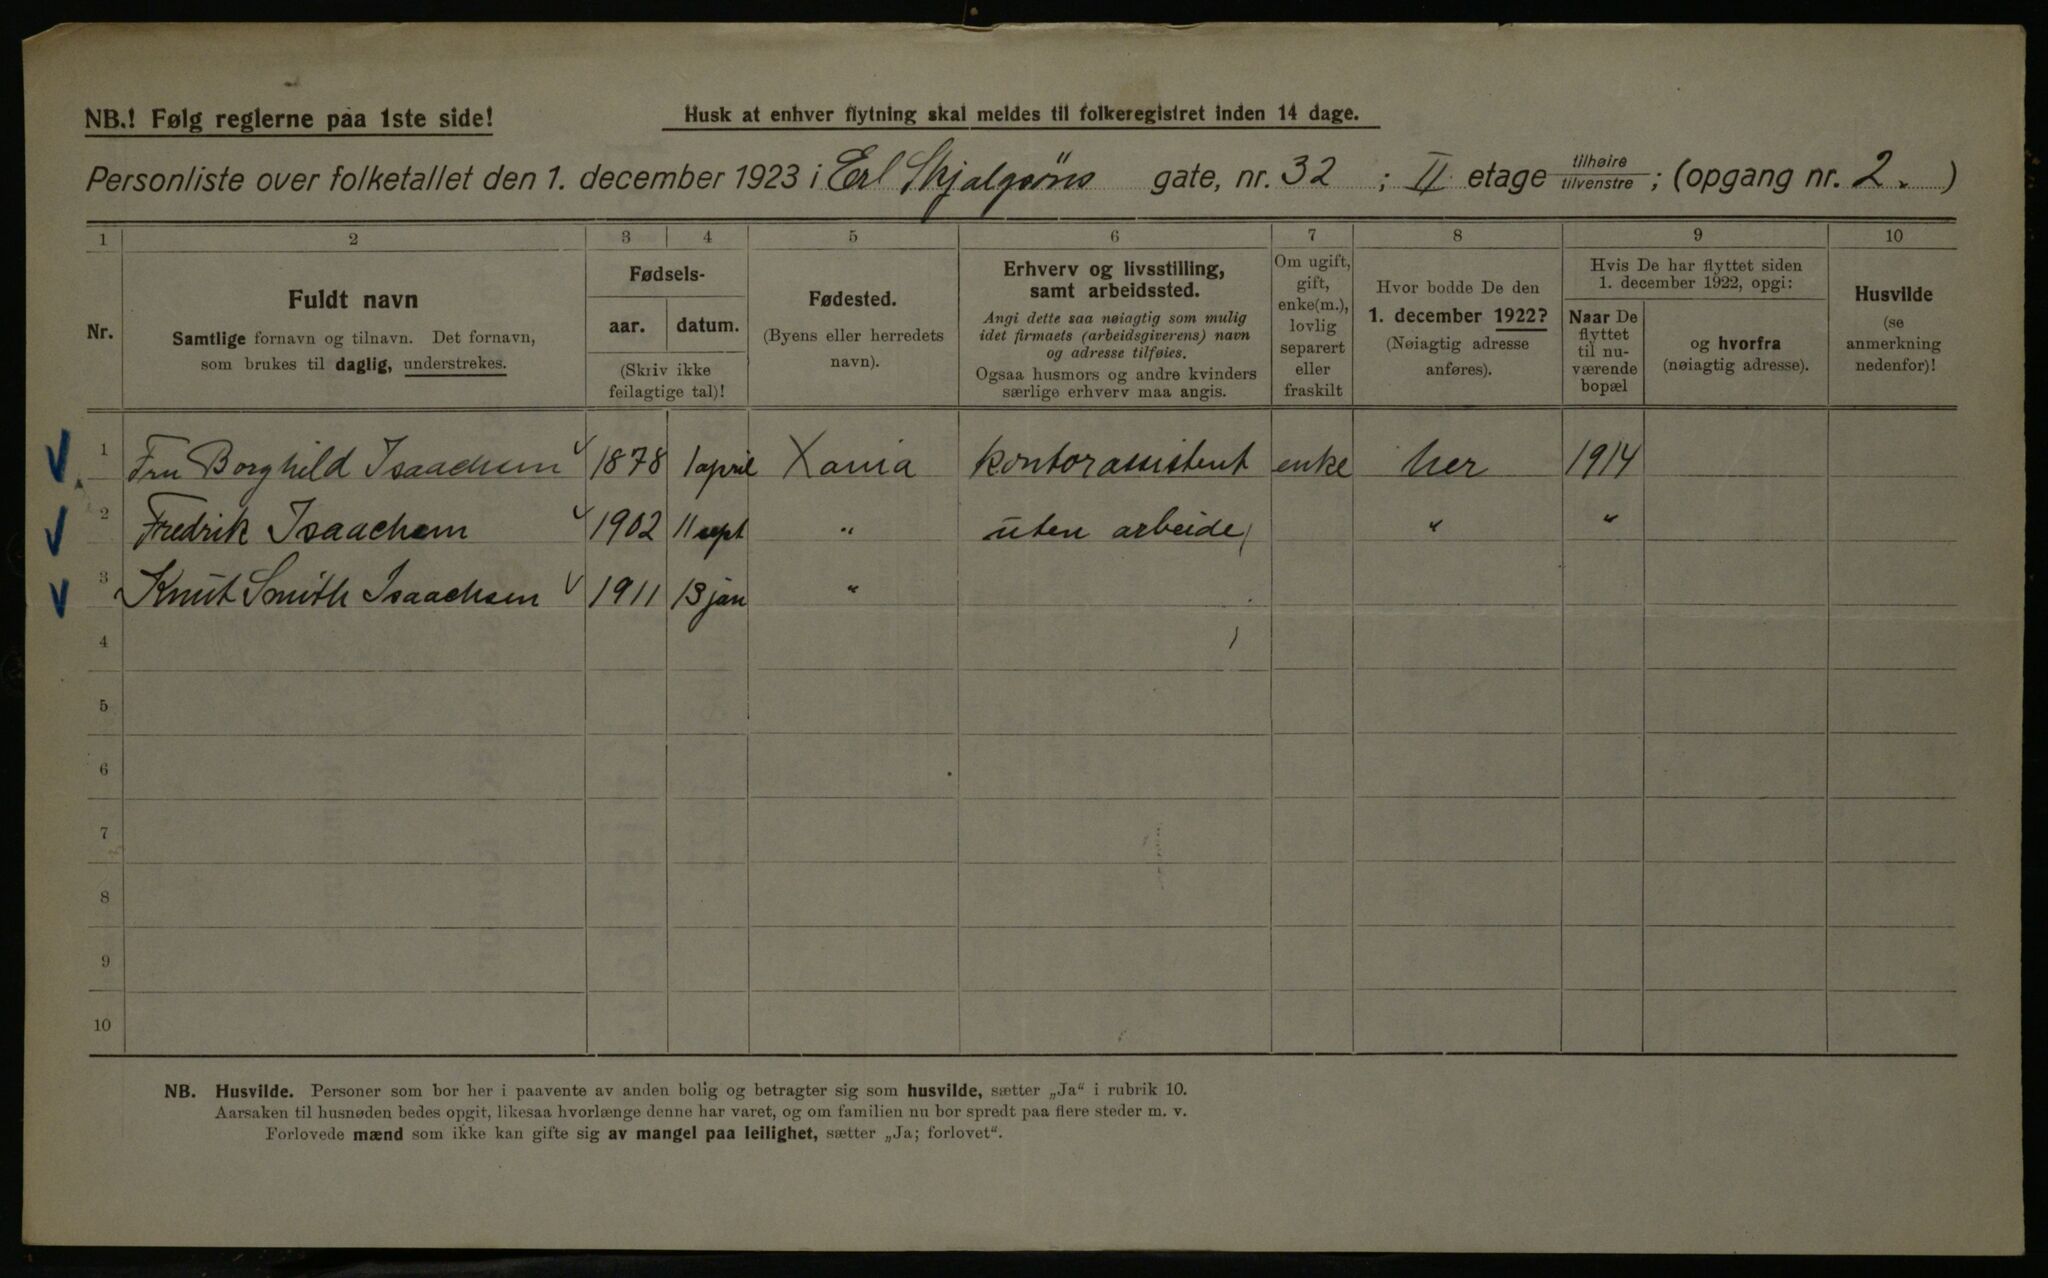 NB.! Følg reglerne paa 1ste side!
Husk at enhver flytning skal meldes til folkeregistret inden 14 dage.
Personliste over folketallet den 1. december 1923 i Erl Skjalgsöns gate, nr. 32 ; II etage tilhøire tilvenstre ; (opgang nr. 2. )
1 2 3 4 5 6 7 8 9 10
Nr.
Fuldt navn
Samtlige fornavn og tilnavn. Det fornavn,
som brukes til daglig, understrekes.
Fødsels-
aar. datum.
(Skriv ikke
feilagtige tal)!
Fødested.
(Byens eller herredets
navn).
Erhverv og livsstilling,
samt arbeidssted.
Angi dette saa nøiagtig som mulig
idet firmaets (arbeidsgiverens) navn
og adresse tilføies.
Ogsaa husmors og andre kvinders
særlige erhverv maa angis.
Om ugift,
gift,
enke(m.),
lovlig
separert
eller
fraskilt
Hvor bodde De den
1. december 1922?
(Nøiagtig adresse
anføres).
Hvis De har flyttet siden
1. december 1922, opgi:
Naar De
flyttet
til nu-
værende
bopæl
og hvorfra
(nøiagtig adresse).
Husvilde
(se
anmerkning
nedenfor)!
1 Fru Borghild Isaachsen 1878 1 april Xania kontorassistent enke her 1914
2 Fredrik Isaachsen 1902 11 sept " uten arbeide " "
3 Knut Smith Isaachsen 1911 13 jan "
4
5
6
7
8
9
10
NB. Husvilde. Personer som bor her i paavente av anden bolig og betragter sig som husvilde, sætter „Ja“ i rubrik 10.
Aarsaken til husnøden bedes opgit, likesaa hvorlænge denne har varet, og om familien nu bor spredt paa flere steder m. v.
Forlovede mænd som ikke kan gifte sig av mangel paa leilighet, sætter „Ja; forlovet“.